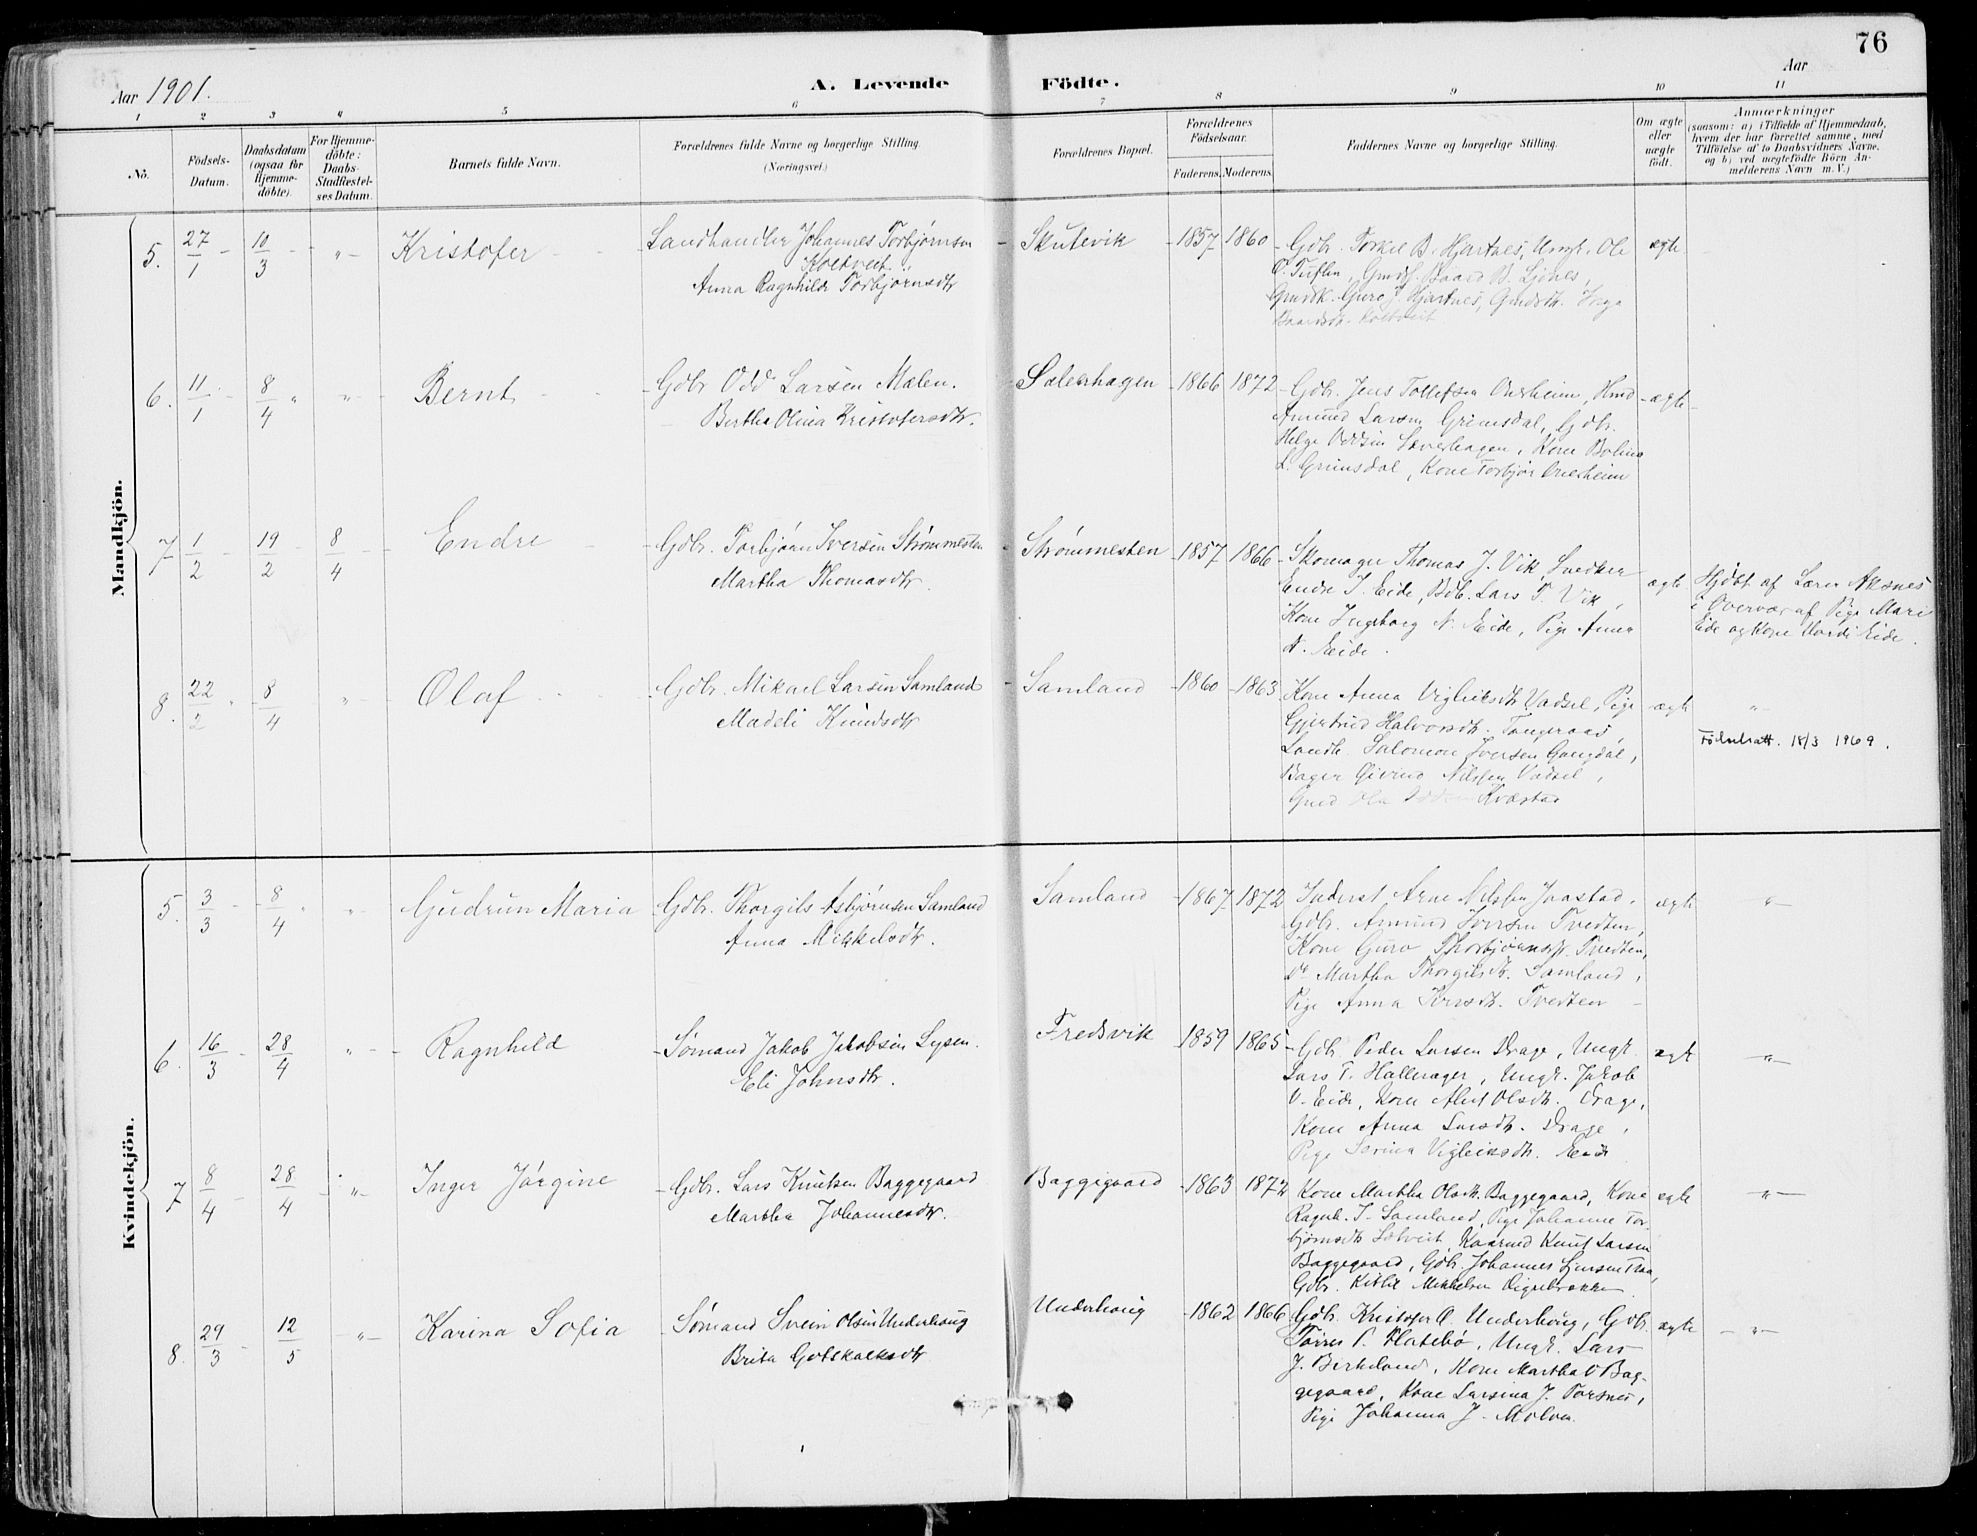 76
Aar 1901.
A. Levende Födte.
Aar
1 2 3 4 5 6 7 8 9 10 11
No.
Födsels-Datum.
Daabsdatum (ogsaa for Hjemmedöbte).
For Hjemmedöbte: Daabs-Stadfæstelses Datum.
Barnets fulde Navn.
Forældrenes fulde Navne og borgerlige Stilling.
(Næringsvei.)
Forældrenes Bopæl.
Forældrenes Födselsaar.
Faderens. Moderens.
Faddernes Navne og borgerlige Stilling.
Om ægte eller uægte födt.
Anmærkninger
(saasom: a) i Tilfælde af Hjemmedaab, hvem der har forrettet samme, med Tilföielse af to Daabsvidners Navne, og b) ved uægtefödte Börn Anmelderens Navn m. V.)
Mandkjön.
5. 27/1 - 10/3 - " - Kristofer
Landhandler Johannes Torbjørnsen
Koltveit.
Anna Ragnhilda Torbjørnsdtr
Skutevik - 1857 1860
Gdbr. Torkel B. Hjartnes, Ungk. Ole
O. Tuflin, Gmds. Baard B. Ljones,
Gmdsk. Guro J. Hjartnes, Gmdsdtr.
Baardsdtr. Koltveit
ægte
6. 11/1 - 8/4 " " Bernt
Gdbr Odd Larsen Mælen.
Bertha Olina Kristofersdtr.
Sæleshagen 1866 1872
Gdbr. Jens Tollefsen Oneheim, Hmd
Amund Larsen Grimsdal, Gdbr.
Helge Oddsen Sæveshagen, Kone Bolina
L. Grimsdal, Kone Torbjør Oneheim
ægte
7 1/2 - 19/2 - 8/4 - Endre
Gdbr. Torbjørn Iversen Strømmesten
Martha Thomasdtr.
Strømmesten 1857 1866
Skomager Thomas J. Vik, Snedker
Endre I. Eide, Gdb. Lars T. Vik,
Kone Ingeborg N. Eide, Pige Anna
N. Eide.
ægte
Hjdbt af Lærer Aksnes
i Overvær af Pige Mari
Eide og Kone Eide.
8. 22/2 " 8/4 " Olaf
Gdbr. Mikael Larsen Samland
Madeli Knudsdtr
Samland - 1860 - 1863
Kone Anna Vigleiksdtr Vadsel, Pige
Gjertrud Halvorsdtr. Tangeraas,
Landh. Salomon Iversen Gangdal,
Bager Eivind Nilssen Vadsel,
Gmd Kvæstad
ægte
"
Fødselsatt. 18/3 1969.
Kvindekjön.
5. 3/3 - 8/4 " " Gudrun Maria
Gdbr. Thorgils Asbjørnsen Samland
Anna Mikkelsdtr.
Samland - 1867 1872
Inderst Arne Nilssen Jaastad,
Gdbr. Amund Iversen Tvedten,
Kone Guro Thorbjørnsdtr. Tvedten,
do Martha Thorgilsdtr. Samland,
Pige Anna Iversdtr. Tvedten -
ægte
"
6. 16/3 - 28/4 " - Ragnhild
Sømand Jakob Jakobsen Lysen.
Eli Johnsdtr.
Fredsvik 1859 1865
Gdbr. Peder Larsen Drage, Ungk.
Lars T. Halleraker, Ungk. Jakob
V. Eide, Kone Alis Olsdtr. Drage,
Kone Anna Larsdtr. Drage,
Pige Serina Vigleiksdtr. Eide
ægte
"
7 8/4 - 28/4 - " - Inger Jørgine
Gdbr. Lars Knutsen Baggegaard
Martha Johannesdtr.
Baggegaard - 1863 1872
Kone Martha Olsdtr. Baggegaard, Kone
Ragnh. T. Samland, Pige Johanne Tor-
bjørnsdtr Solveit, Kaarmd Knut Larsen
Baggegaard, Gdbr. Johannes
Gdbr. Mikkelsen
ægte
"
8. 29/3 - 12/5 " - Karina Sofia
Sømand Svein Olsen Underhaug
Brita Gotskalksdtr
Underhaug - 1862 1866
Gdbr. Kristofer O. Underhaug, Gdbr.
P. Flatebø, Ungk. Lars
J. Birkeland, Kone Martha O Bag-
gegaard, Kone Larsina J. Torsnes,
Pige Johanna J. Molven.
ægte
"